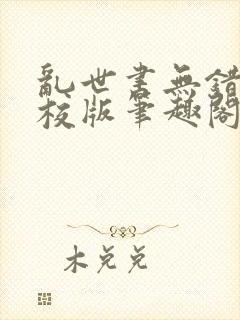 亂世書無錯
校版筆趣閣
木兑兑